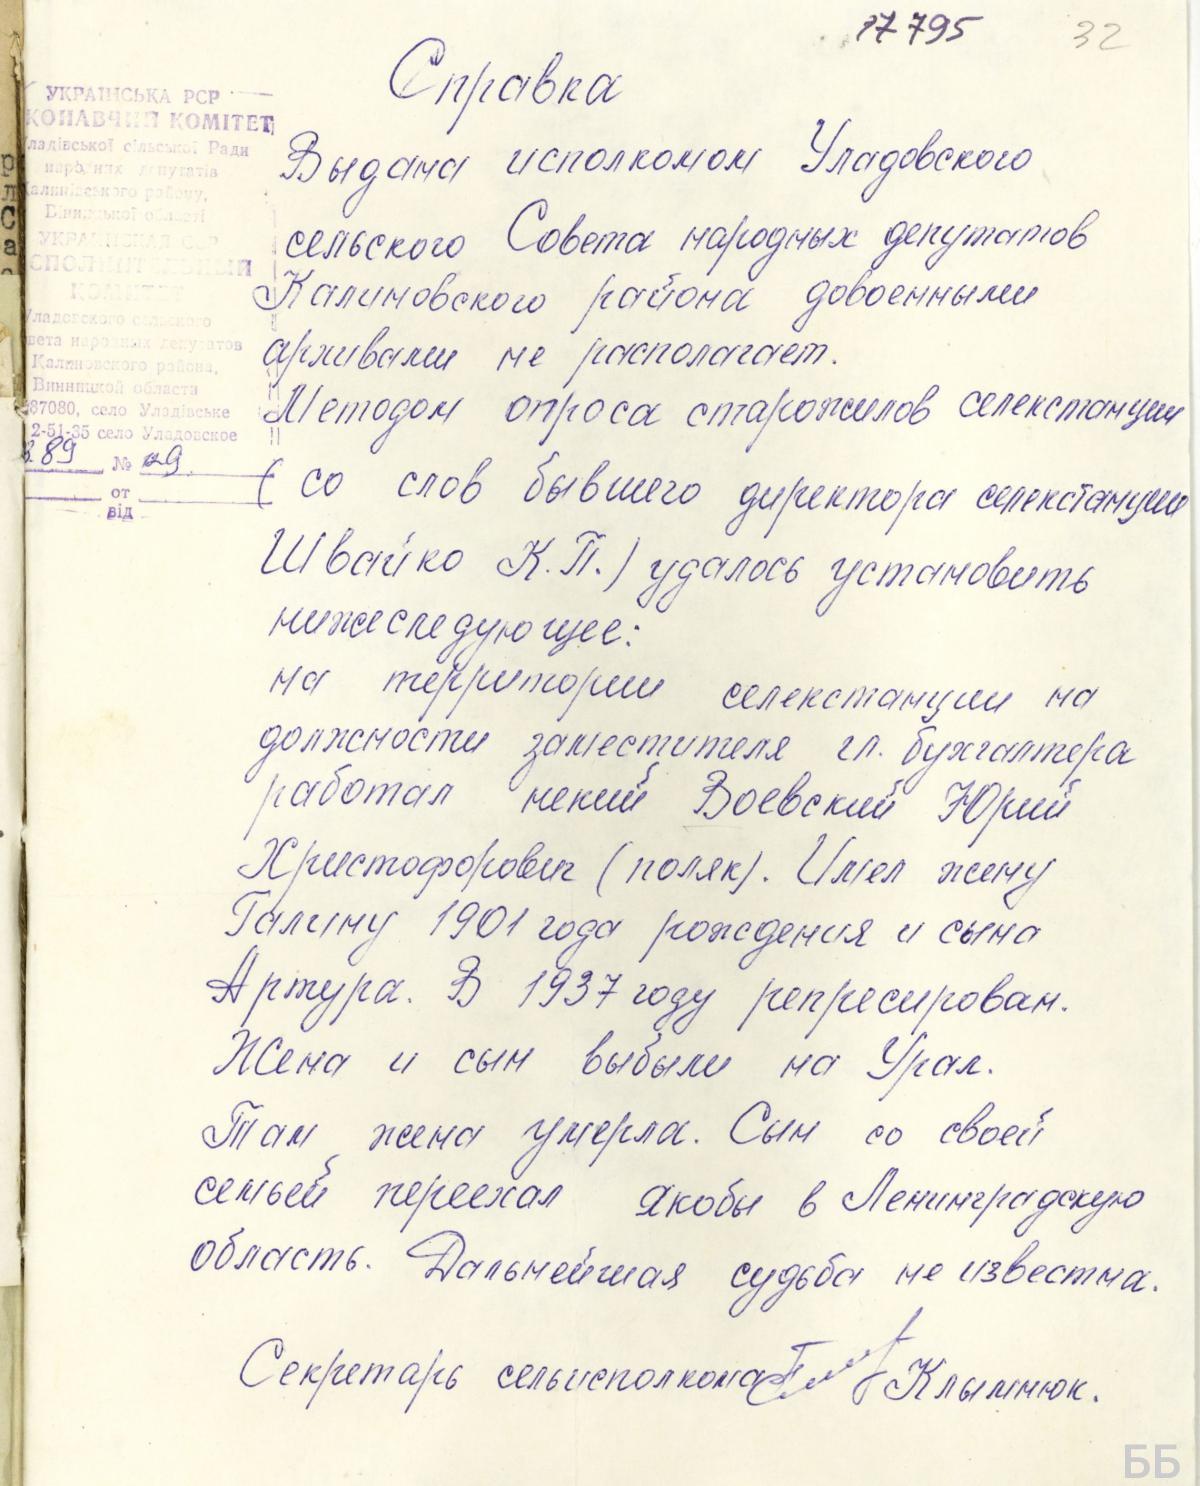 17795
32
Справка
УКРАЇНСЬКА РСР
КОНАВЧИЙ КОМІТЕТ
ладівської сільської Ради
народних депутатів
Калинівського району,
Вінницької області
УКРАИНСКАЯ ССР
СПОЛНИТЕЛЬНЫЙ
КОМИТЕТ
Уладовского сельского
вета народных депутатов
Калиновского района,
Винницкой области
87080, село Уладівське
2-51-35 село Уладовское
89 № 29.
от
від
Выдана исполкомом Уладовского
сельского Совета народных депутатов
Калиновского района довоенными
архивами не располагает.
Методом опроса старожилов селекстанции
(со слов бывшего директора селекстанции
Швайко К.П.) удалось установить
нижеследующее:
на территории селекстанции на
должности заместителя гл. бухгалтера
работал некий Воевский Юрий
Христофорович (поляк). Имел жену
Галину 1901 года рождения и сына
Артура. В 1937 году репресирован.
Жена и сын выбыли на Урал.
Там жена умерла. Сын со своей
семьей переехал якобы в Ленинградскую
область. Дальнейшая судьба не известна.
Секретарь сельисполкома Клымнюк.
ББ